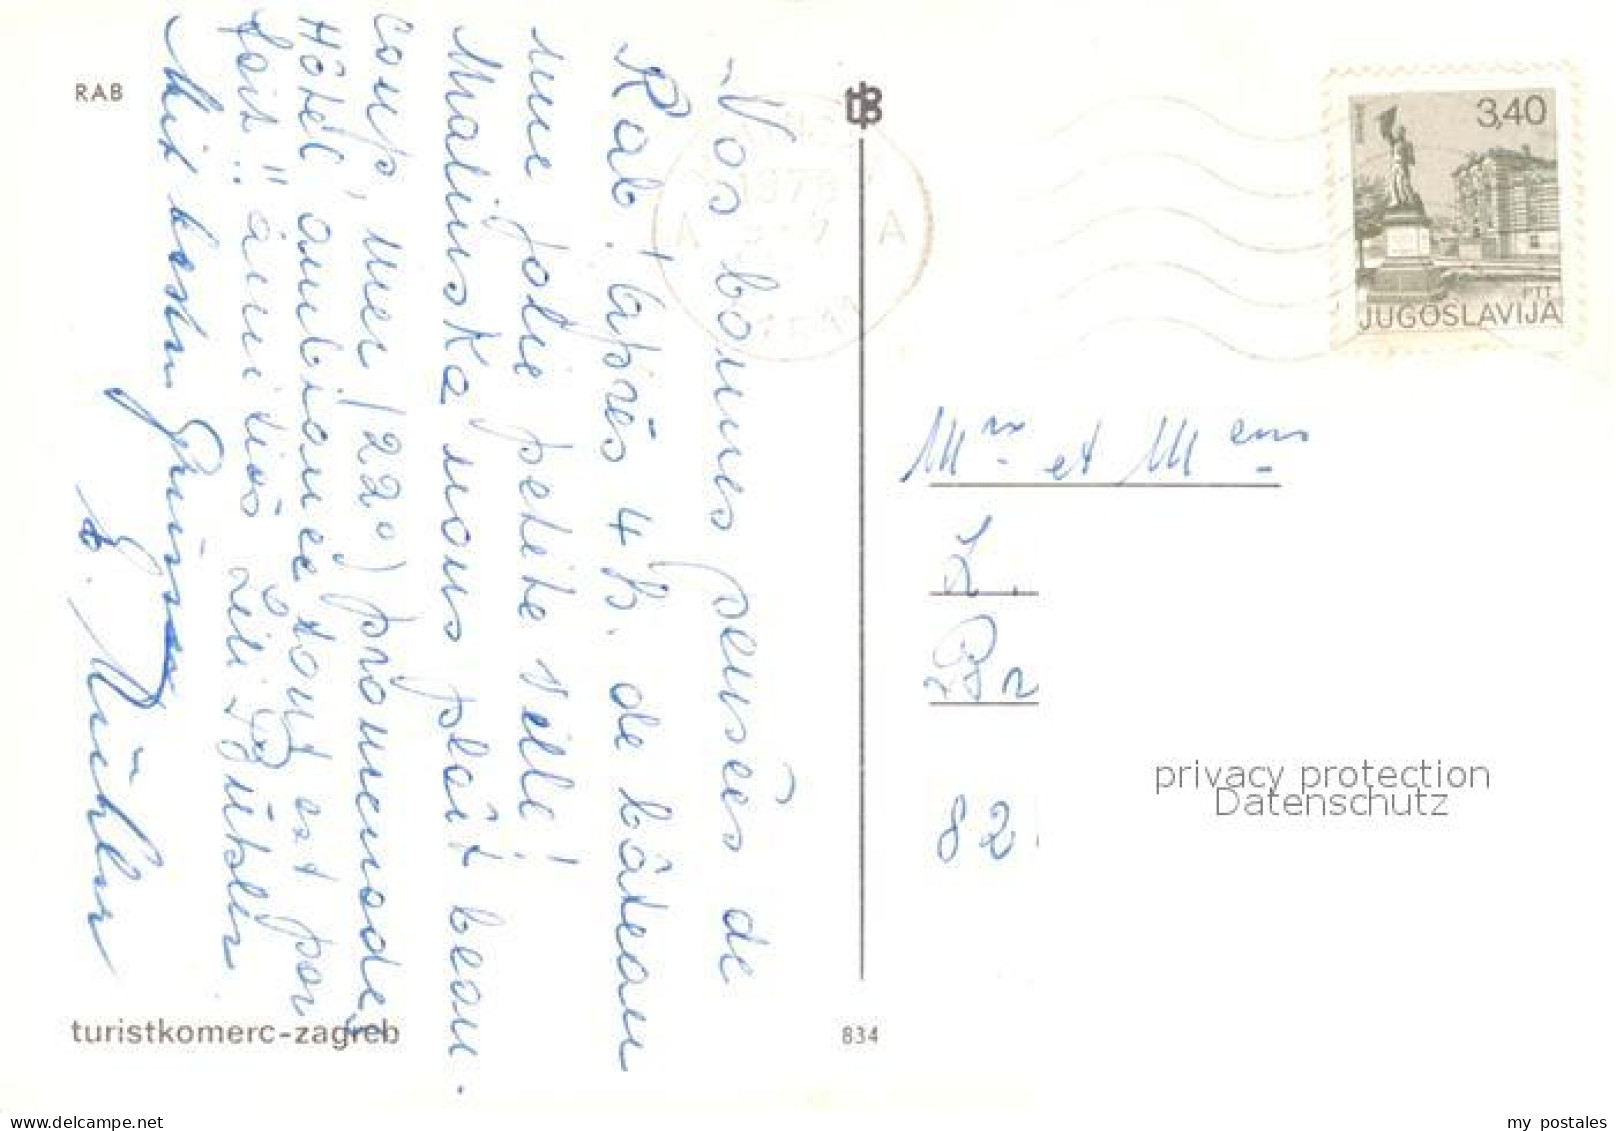 RAB
Nos bonnes pensées de
Rab! après 4 h. de bâteau
une jolie petite ville!
Malinska nous plaît beau.
coup, mer (22°) promenades
Hôtel ambiance tout est par
fait!! amitiés Lili Bühler
Mit besten Grüssen
E. Bühler
turistkomerc-zagreb
834
3,40
PTT
JUGOSLAVIJA
A A
Mr et Mme
Z.
82
privacy protection
Datenschutz
delcampe.net
my postales